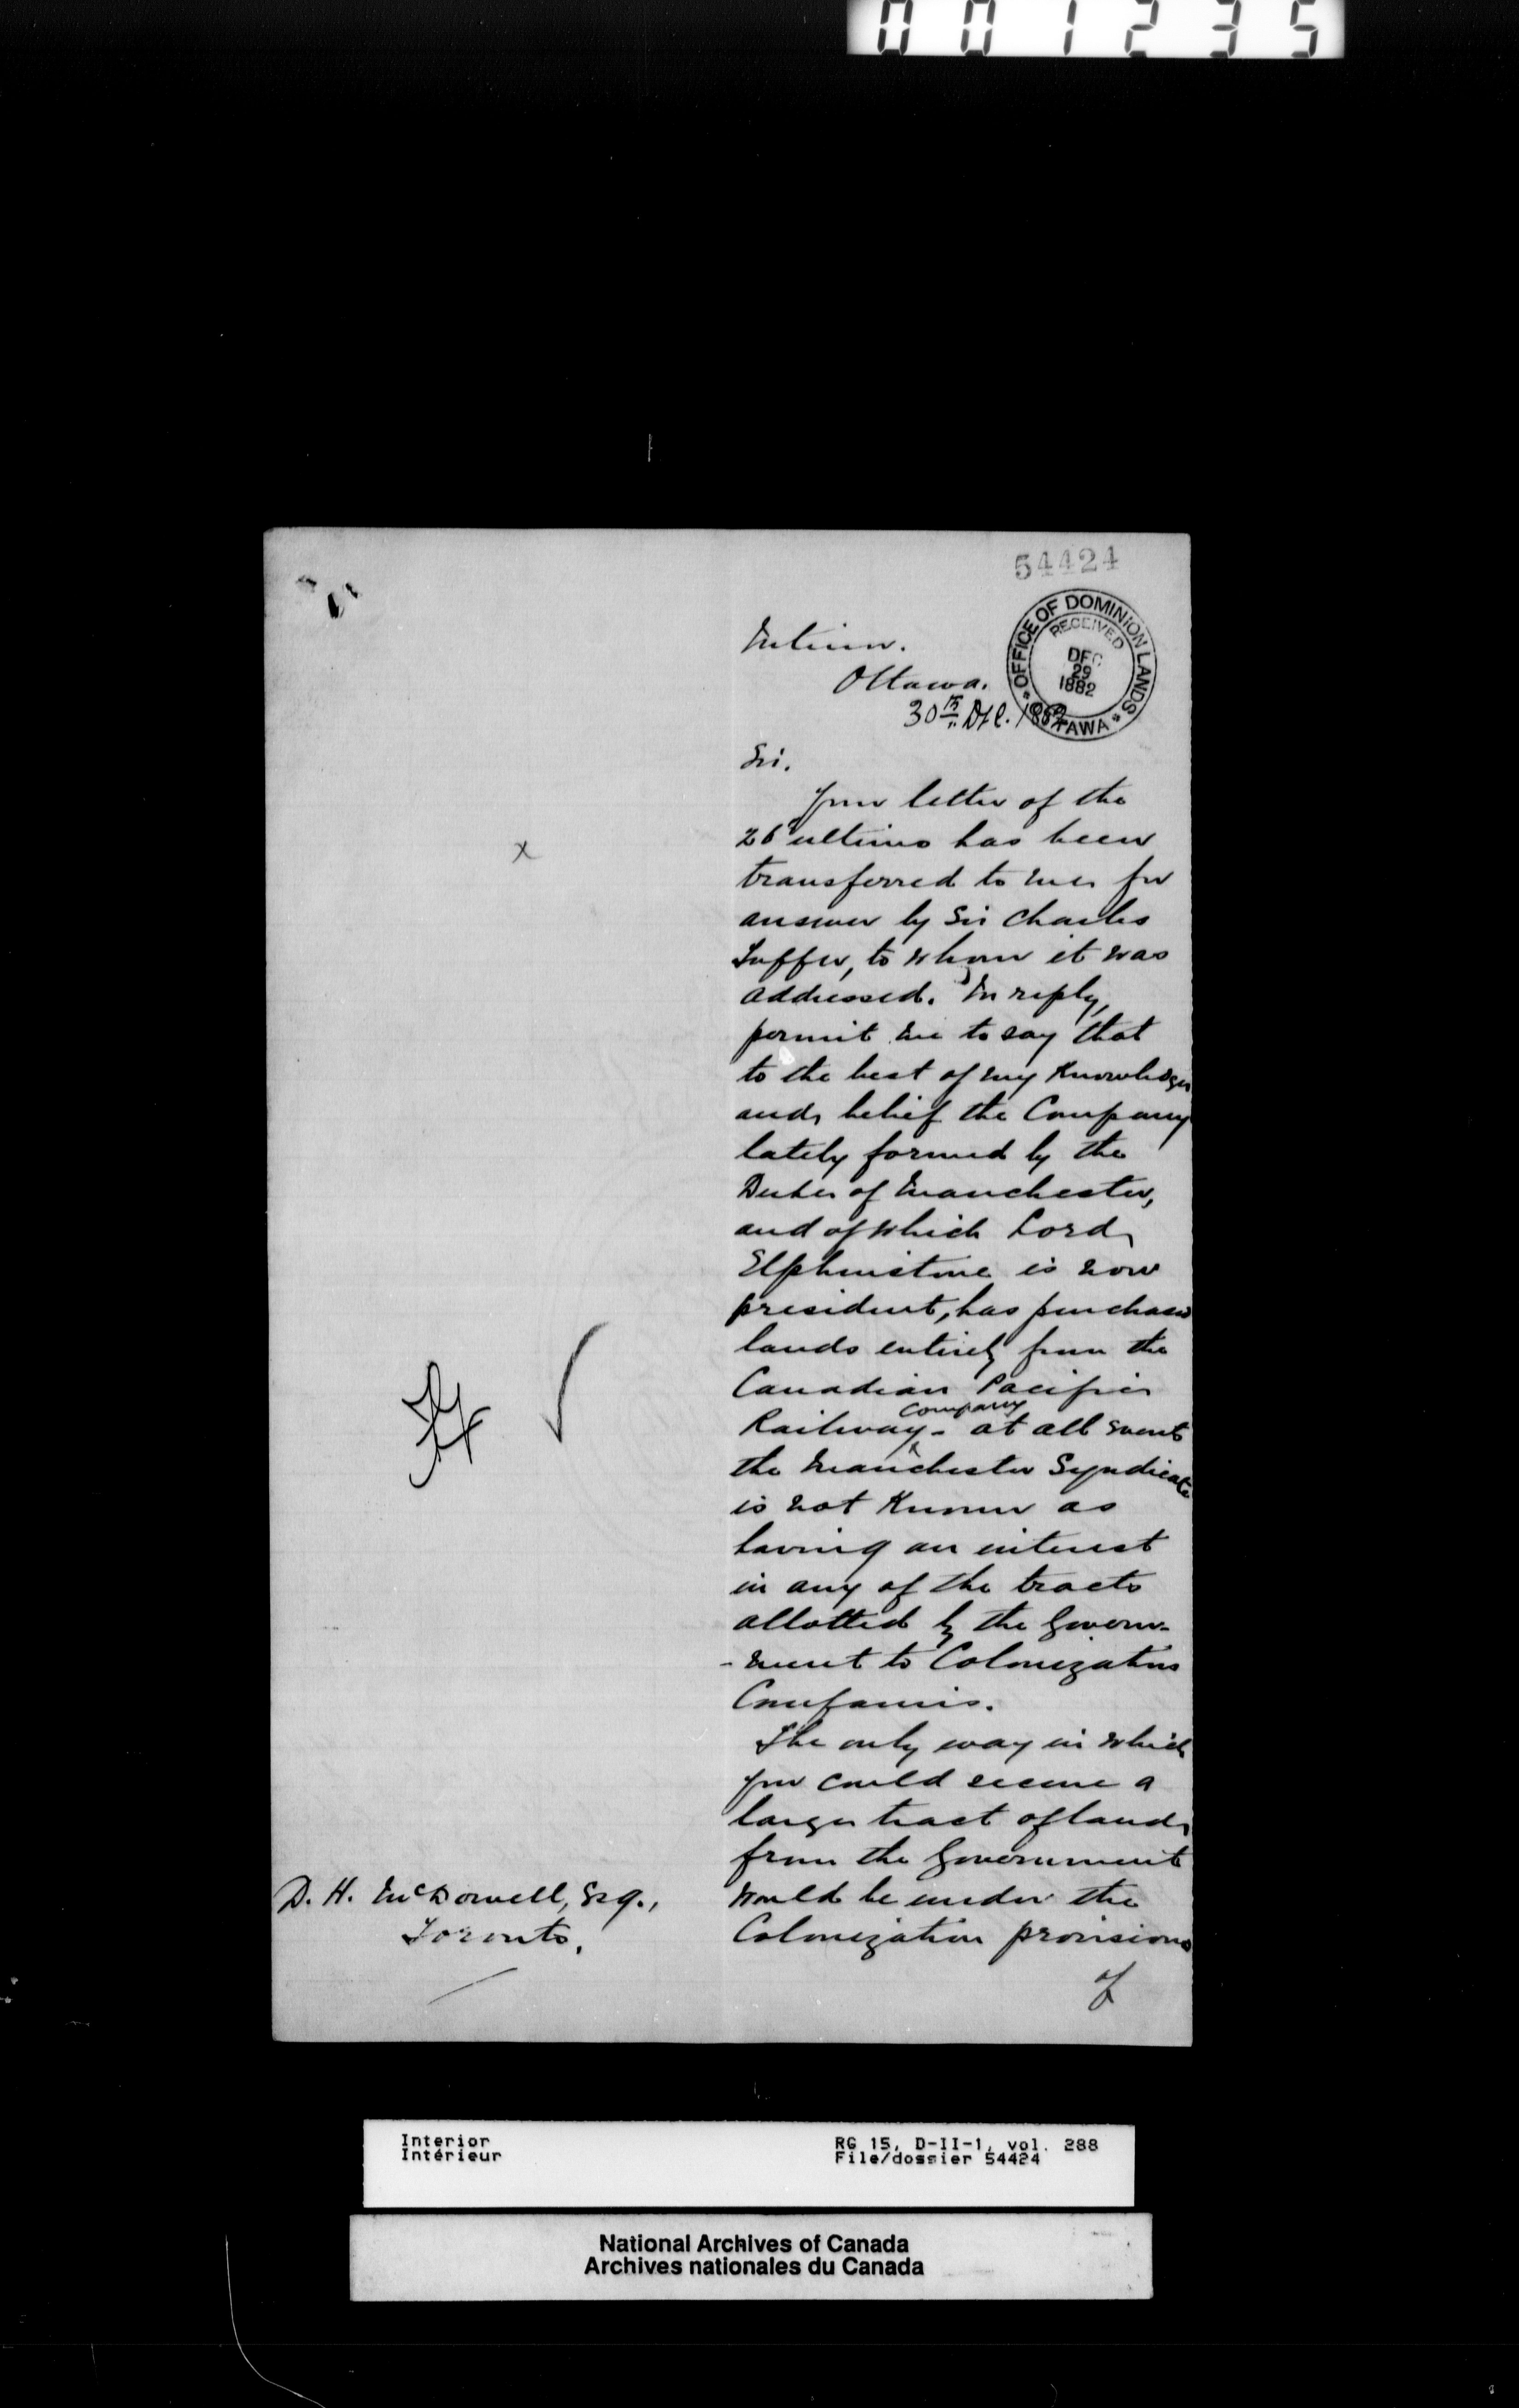 001235
54424
OFFICE OF DOMINION LANDS
RECEIVED
DEC
29
1882
OTTAWA
Interior.
Ottawa.
30th Dec. 1882
Sir.
Your letter of the
26 ultimo has been
transferred to me for
answer by Sir Charles
Tupper, to whom it was
addressed. In reply,
permit me to say that
to the best of my Knowledge
and belief the Company
lately formed by the
Duke of Manchester,
and of which Lord
Elphinstone is now
president, has purchased
lands entirely from the
Canadian Pacific
Railway Company - at all events
the Manchester Syndicate
is not Known as
having an interest
in any of the tracts
allotted by the Govern-
-ment to Colonization
Companies.
The only way in which
you could secure a
large tract of land
from the Government
would be under the
Colonization provisions
of
D. H. McDowell, Esq.,
Toronto.
Interior
Intérieur
RG 15, D-II-1, vol. 288
File/dossier 54424
National Archives of Canada
Archives nationales du Canada